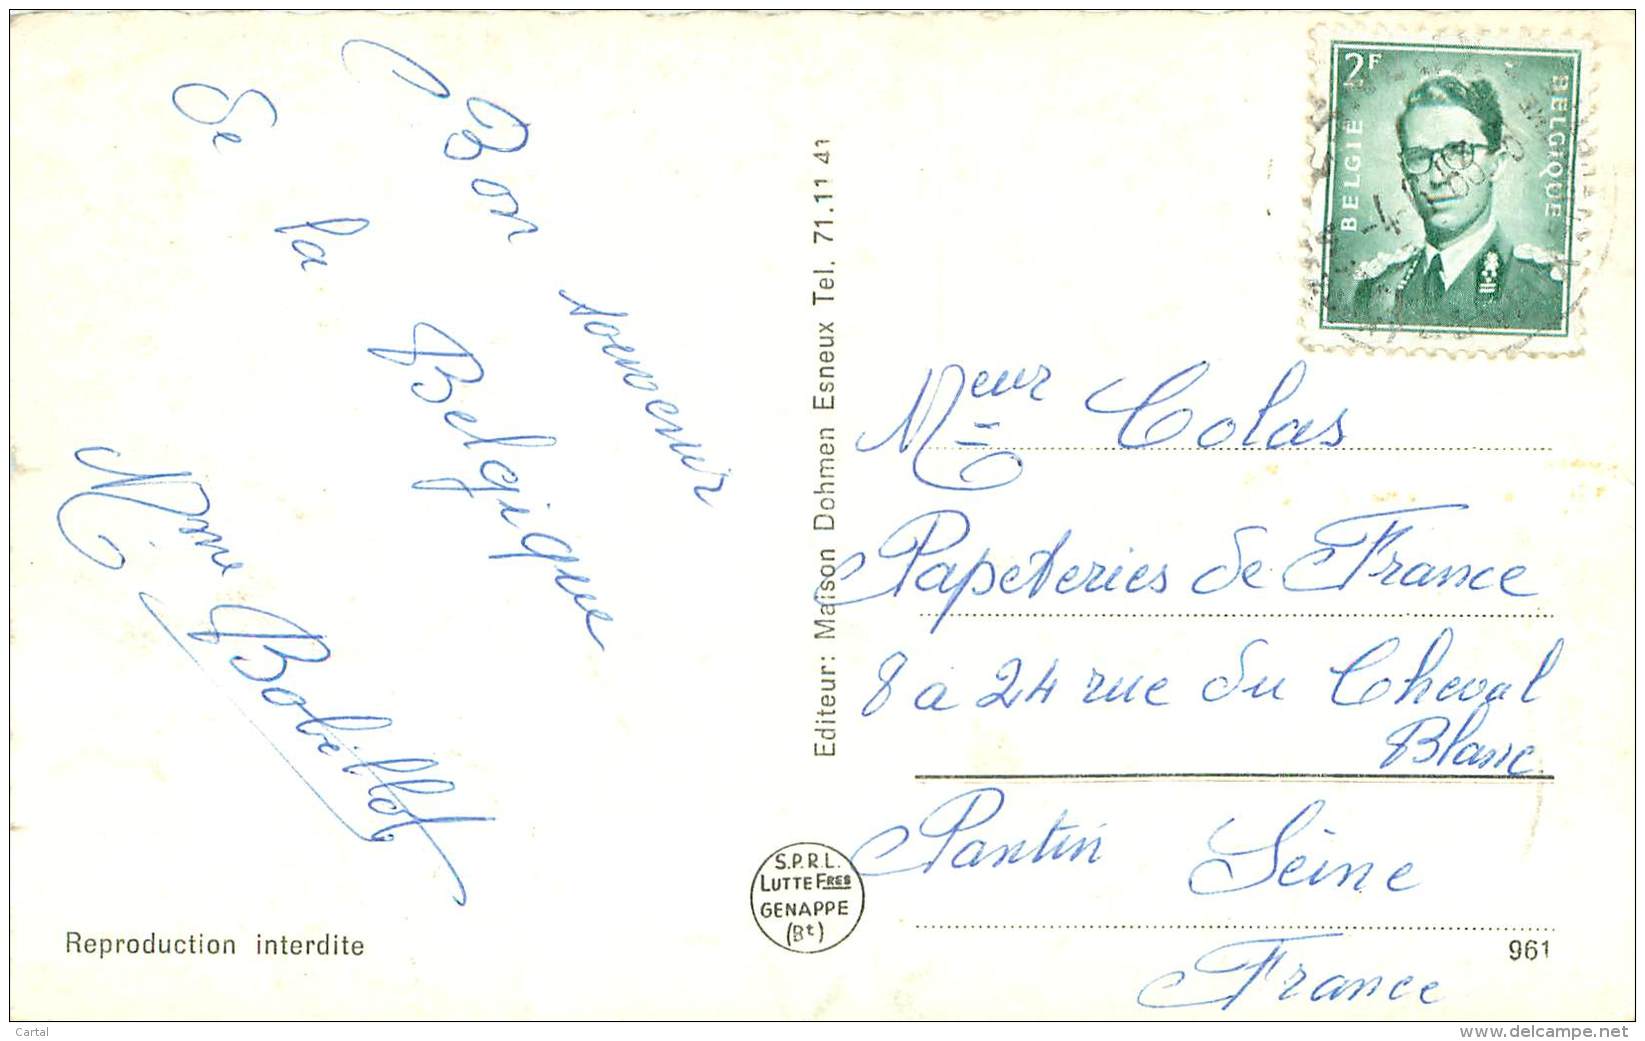 Bon souvenir
de la Belgique
Mme Bobillot
Reproduction interdite
Editeur: Maison Dohmen Esneux Tel. 71.11 41
S.P.R.L.
LUTTE FRES
GENAPPE
(Bt)
2F
BELGIE
BELGIQUE
Meur Colas
Papeteries de France
8 a 24 rue du Cheval
Blanc
Pantin Seine
France
961
Cartal
www.delcampe.net